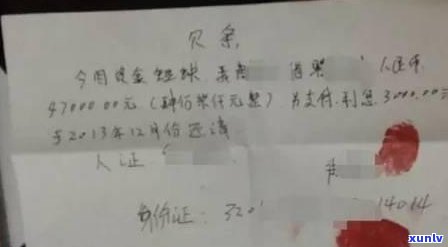 欠条
今因资金短缺 借 人民币
47000.00元(肆仟柒仟元整) 另支付利息3000.00元
于2013年12月份还清
人证
身份证:320 14014
xunlv
www.xunlv.cn